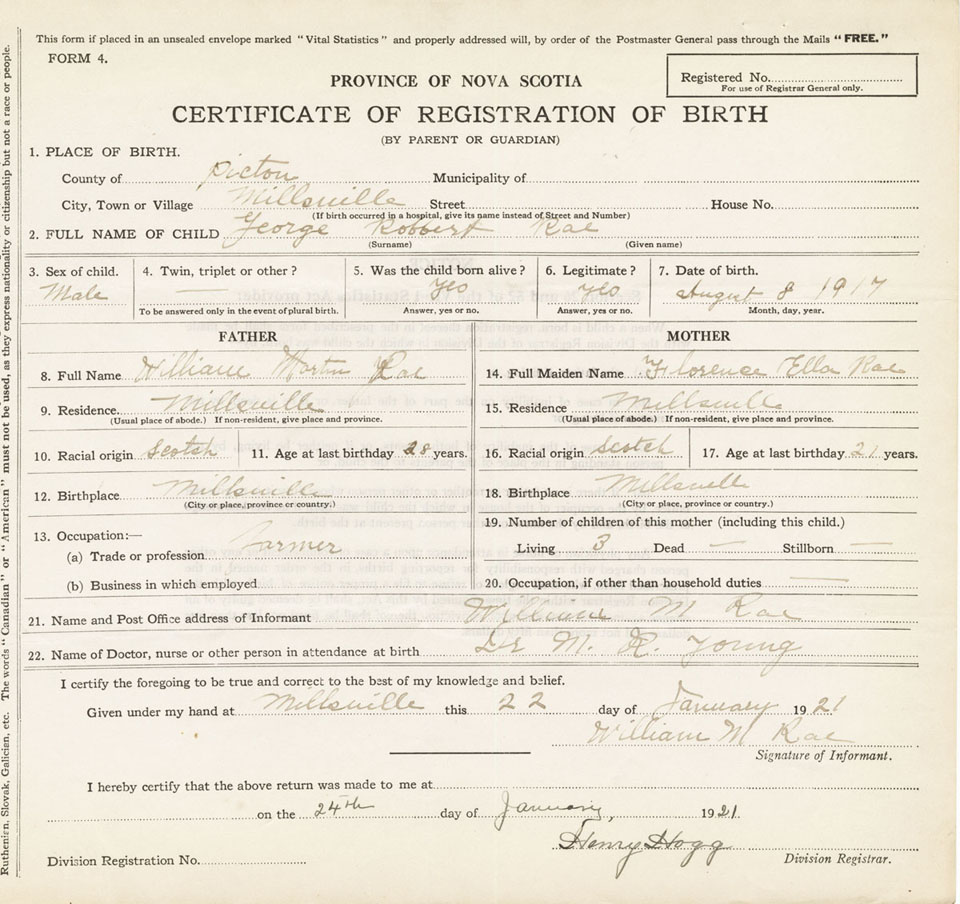 This form if placed in an unsealed envelope marked "Vital Statistics" and properly addressed will, by order of the Postmaster General pass through the Mails "FREE."
FORM 4.
Registered No.
For use of Registrar General only.
PROVINCE OF NOVA SCOTIA
CERTIFICATE OF REGISTRATION OF BIRTH
(BY PARENT OR GUARDIAN)
1. PLACE OF BIRTH.
County of Picton Municipality of
City, Town or Village Millsville Street House No.
(If birth occurred in a hospital, give its name instead of Street and Number)
2. FULL NAME OF CHILD George Robbert Rae
(Surname) (Given name)
3. Sex of child. 4. Twin, triplet or other? 5. Was the child born alive? 6. Legitimate? 7. Date of birth.
Male — yes yes August 8 1917
To be answered only in the event of plural birth. Answer, yes or no. Answer, yes or no. Month, day, year.
FATHER
8. Full Name William Martin Rae
9. Residence. Millsville
(Usual place of abode.) If non-resident, give place and province.
10. Racial origin Scotch 11. Age at last birthday 28 years.
12. Birthplace Millsville
(City or place, province or country.)
13. Occupation:—
(a) Trade or profession Farmer
(b) Business in which employed
MOTHER
14. Full Maiden Name Florence Ella Rae
15. Residence Millsville
(Usual place of abode.) If non-resident, give place and province.
16. Racial origin Scotch 17. Age at last birthday 21 years.
18. Birthplace Millsville
(City or place, province or country.)
19. Number of children of this mother (including this child.)
Living 3 Dead — Stillborn —
20. Occupation, if other than household duties —
21. Name and Post Office address of Informant William M Rae
22. Name of Doctor, nurse or other person in attendance at birth Dr M. R. Young
I certify the foregoing to be true and correct to the best of my knowledge and belief.
Given under my hand at Millsville this 22 day of January 1921
William M Rae
Signature of Informant.
I hereby certify that the above return was made to me at
on the 24th day of January, 1921.
Henry Hogg
Division Registration No. Division Registrar.
Ruthenian, Slovak, Galician, etc. The words "Canadian" or "American" must not be used, as they express nationality or citizenship but not a race or people.